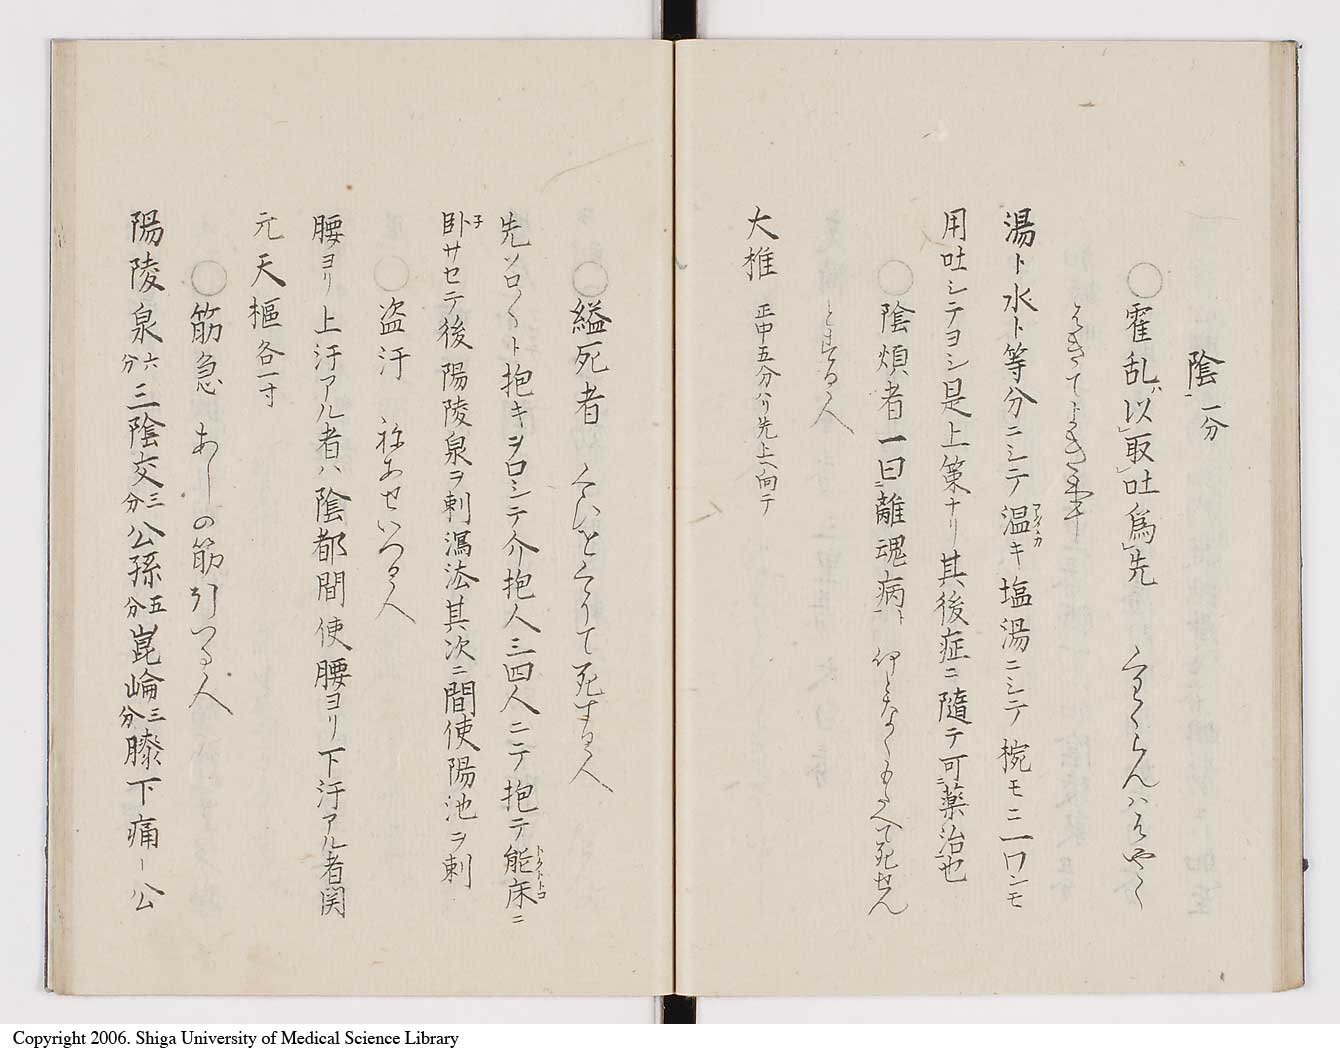 陰一分
○霍乱ハ以取吐爲先 くわくらんハはやく
はきてよき
湯ト水ト等分ニシテ温キ塩湯ニシテ椀モニ二ワンモ
用吐シテヨシ是上策ナリ其後症ニ隨テ可藥治也
○陰煩者一曰離魂病ト 何となくもたへて死せん
とする人
大椎 正中五分ハリ先上ヘ向テ
○縊死者 くびをくゝりて死する人
先ソロ〳〵ト抱キヲロシテ介抱人三四人ニテ抱テ能床ニ
卧サセテ後陽陵泉ヲ刺瀉法其次ニ間使陽池ヲ刺
○盗汗 祢あせいつる人
腰ヨリ上汗アル者ハ陰都間使腰ヨリ下汗アル者関
元天樞各一寸
○筋急 あしの筋引つる人
陽陵泉六分三陰交三分公孫五分崑崘三分膝下痛ー公
Copyright 2006. Shiga University of Medical Science Library